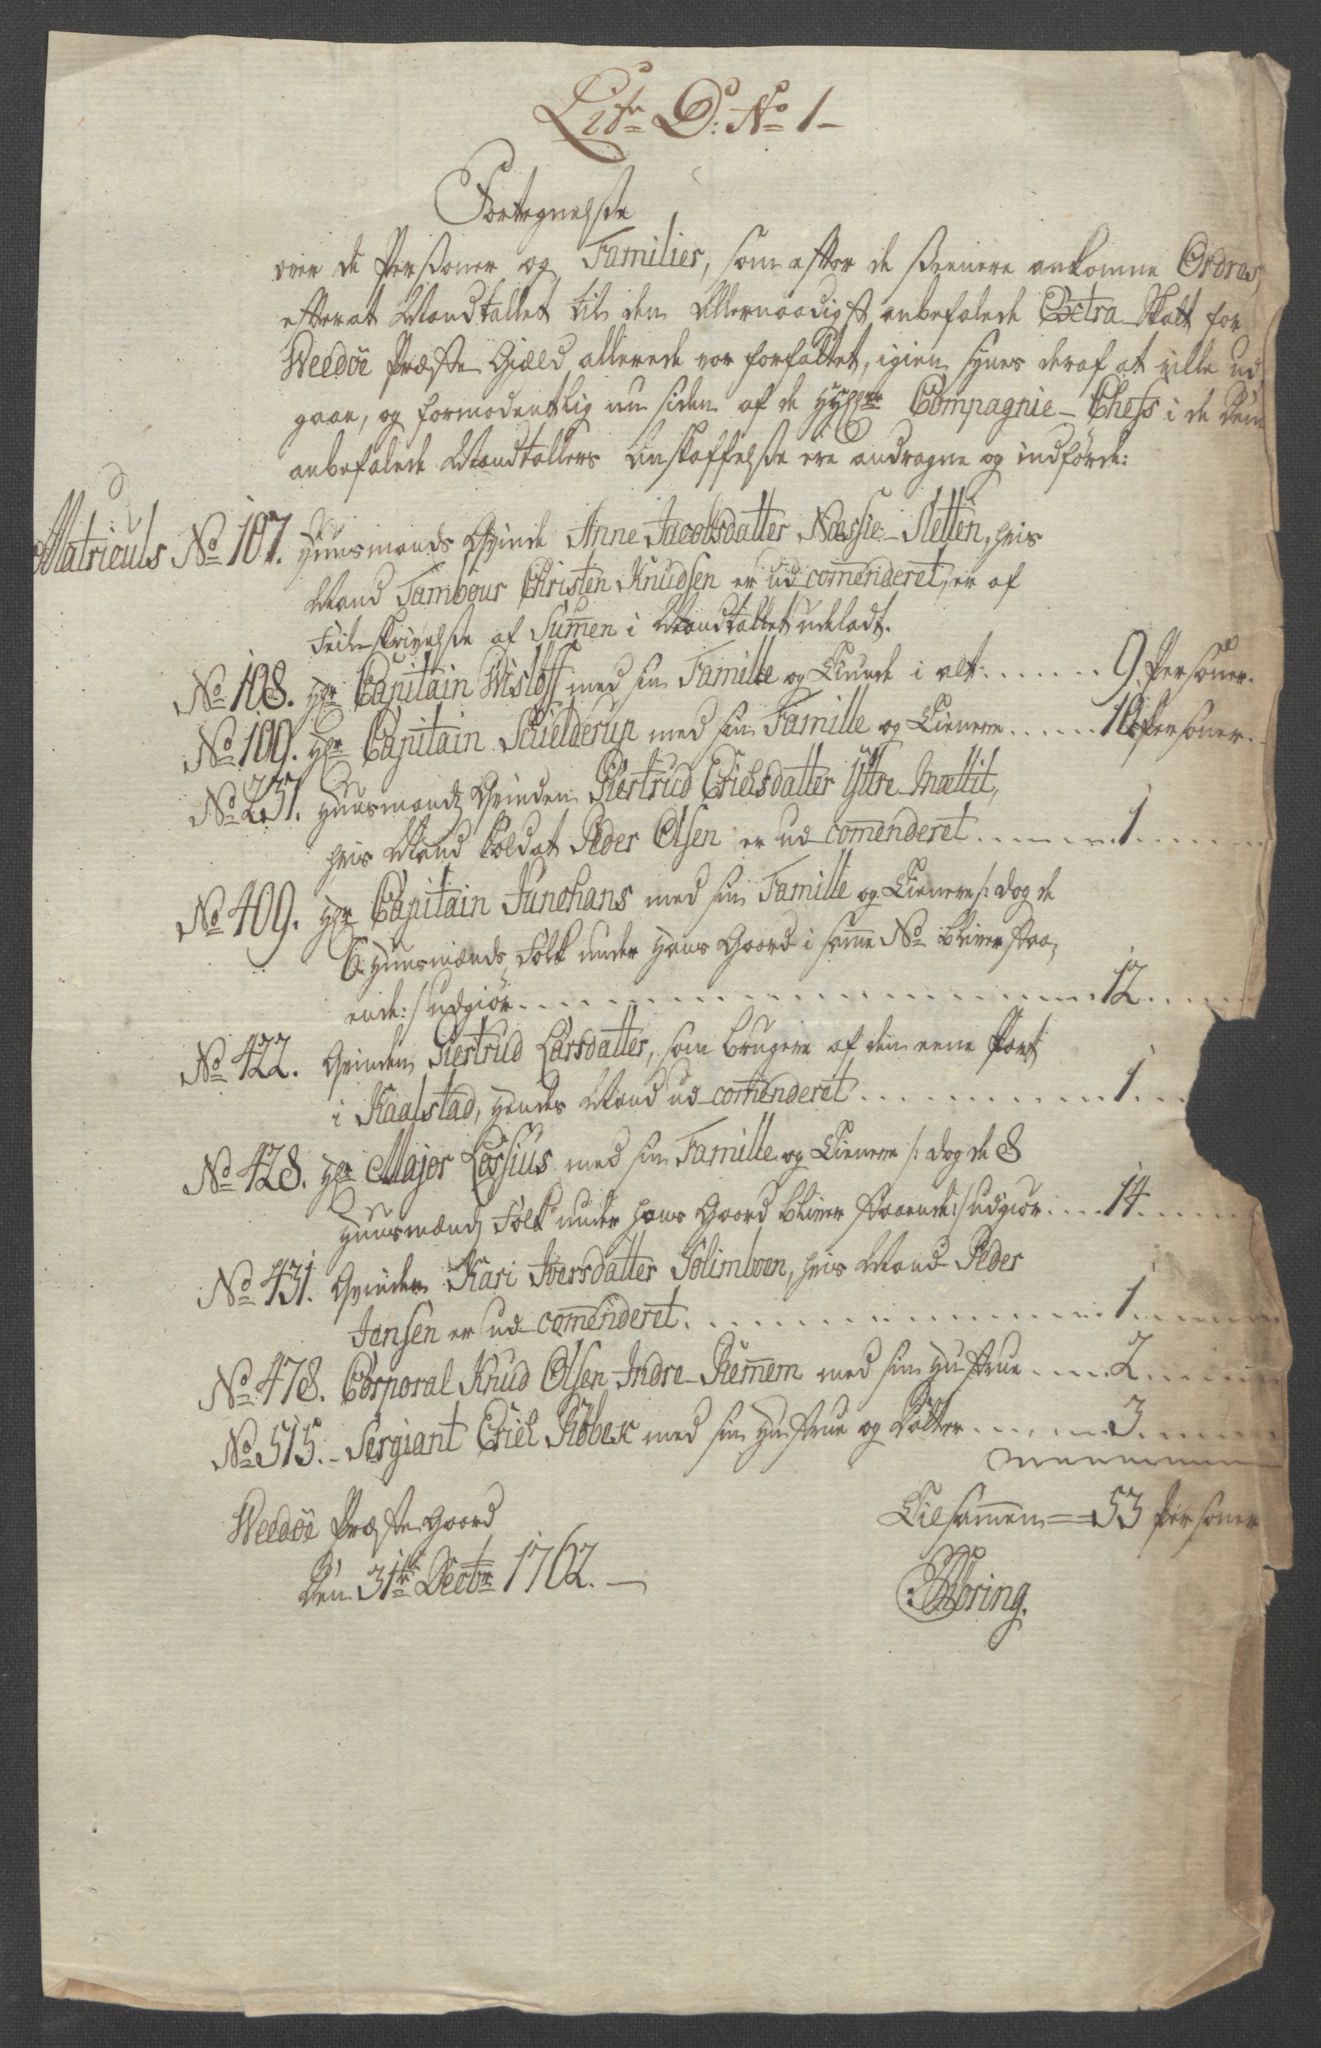 Litr D: No 1
Fortegnelse
over de Personer og Familier, som efter de seenere ankomne Ordres,
efterat Mandtallet til den Allernaadigst anbefalede Extra Skatt for
Weedøe Præste Gield allerede var forfattet, igien synes deraf at ville ud
gaae, og formodentlig nu siden af de HHrr Compagnie-Chefs i de Dem
anbefalede Mandtallers Anskaffelse ere andragne og indførde:
Matriculs No 107. Huusmands Qvinde Anne Jacobsdatter Nessie-Sletten, hvis
Mand Tambour Christen Knudsen er ud comenderet, er af
Feilskrivelse af Sumen i Mandtallet udeladt.
No 108. Hr Capitain Wisløff med sin Famille og Tiunde i alt: 9 Personer.
No 109. Hr Capitain Schielderup med sin Famille og Tienere 10 Personer.
No 251. Huusmands Qvinden Giertrud Erichsdatter Yttre-Mættit,
hvis Mand Soldat Peder Olsen er ud comenderet 1
No 409. Hr Capitain Junghans med sin Famille og Tienere /: dog de
6 Huusmænds Folk under Hans Gaard i same No bliver staa,
ende :/ udgiør 12
No 422. Qvinden Giertrud Larsdatter, som brugere af den eene Part
i Kaalstad, Hendes Mand ud comenderet 1
No 428. Hr Major Lossius med sin Famille og Tienere /: dog de 8
Huusmænds Folk under hans Gaard bliver staaende :/ udgiør 14
No 431. Qvinden Kari Iversdatter Solimboen, hvis Mand Peder
Jensen er ud comenderet 1
No 478. Corporal Knud Olsen Indre-Hemem med sin Hustrue 2
No 515. Sergiant Eriel med sin Hustrue og Dotter 3
Weedøe Præste Gaard Tilsamen 53 Personer
Den 31te Decbr 1762.